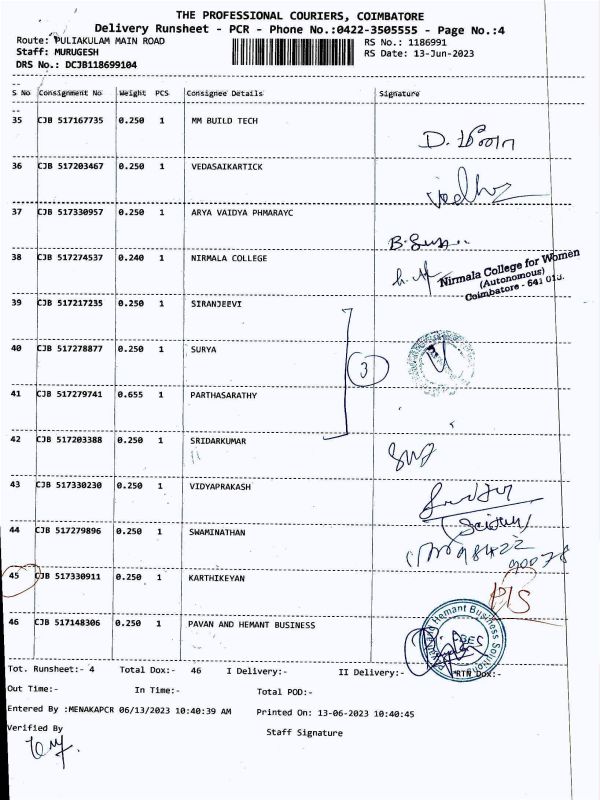 THE PROFESSIONAL COURIERS, COIMBATORE
Delivery Runsheet - PCR - Phone No.:0422-3505555 - Page No.:4
Route: PULIAKULAM MAIN ROAD RS No.: 1186991
Staff: MURUGESH RS Date: 13-Jun-2023
DRS No.: DCJB118699104
S No Consignment No Weight PCS Consignee Details Signature
35 CJB 517167735 0.250 1 MM BUILD TECH
36 CJB 517203467 0.250 1 VEDASAIKARTICK
37 CJB 517330957 0.250 1 ARYA VAIDYA PHMARAYC
38 CJB 517274537 0.240 1 NIRMALA COLLEGE
Nirmala College for Women
(Autonomous)
Coimbatore - 641 018.
39 CJB 517217235 0.250 1 SIRANJEEVI
40 CJB 517278877 0.250 1 SURYA
3
41 CJB 517279741 0.655 1 PARTHASARATHY
42 CJB 517203388 0.250 1 SRIDARKUMAR
43 CJB 517330230 0.250 1 VIDYAPRAKASH
44 CJB 517279896 0.250 1 SWAMINATHAN
45 CJB 517330911 0.250 1 KARTHIKEYAN
46 CJB 517148306 0.250 1 PAVAN AND HEMANT BUSINESS
Hemant Business Solutions
Tot. Runsheet:- 4 Total Dox:- 46 I Delivery:- II Delivery:- RTN Dox:-
Out Time:- In Time:- Total POD:-
Entered By :MENAKAPCR 06/13/2023 10:40:39 AM Printed On: 13-06-2023 10:40:45
Verified By Staff Signature